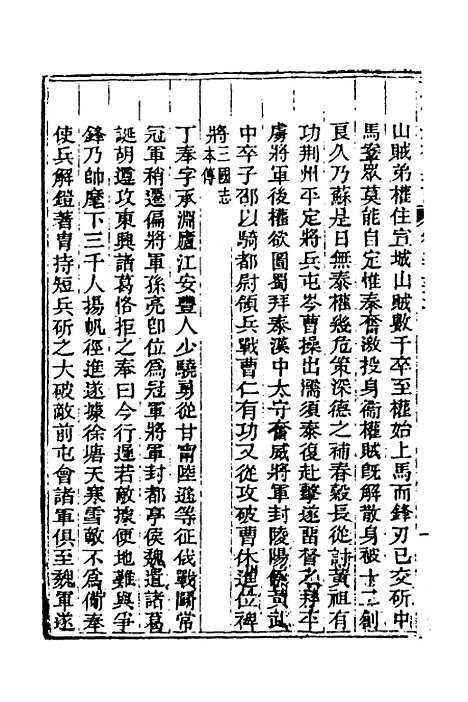 山賊弟權住宣城山賊數千卒至權始上馬而鋒刃已交斫中
馬鞌眾莫能自定惟泰奮激投身衞權賊旣解散身被十二創
良久乃蘇是日無泰權幾危策深德之補春穀長從討黃祖有
功荆州平定將兵屯岑曹操出濡須泰復赴擊遂畱督之拜平
虜將軍後權欲圖蜀拜泰漢中太守奮威將軍封陵陽侯黃武
中卒子邵以騎都尉領兵戰曹仁有功又從攻破曹休進位裨
將三國志本傳
丁奉字承淵廬江安豐人少驍勇從甘甯陸遜等征伐戰鬭常
冠軍稍遷偏將軍孫亮卽位爲冠軍將軍封都亭侯魏遣諸葛
誕胡遵攻東興諸葛恪拒之奉曰今行遲若敵據便地難與爭
鋒乃帥麾下三千人揚帆徑進遂據徐塘天寒雪敵不爲備奉
使兵解鎧著胄持短兵斫之大破敵前屯會諸軍俱至魏軍遂